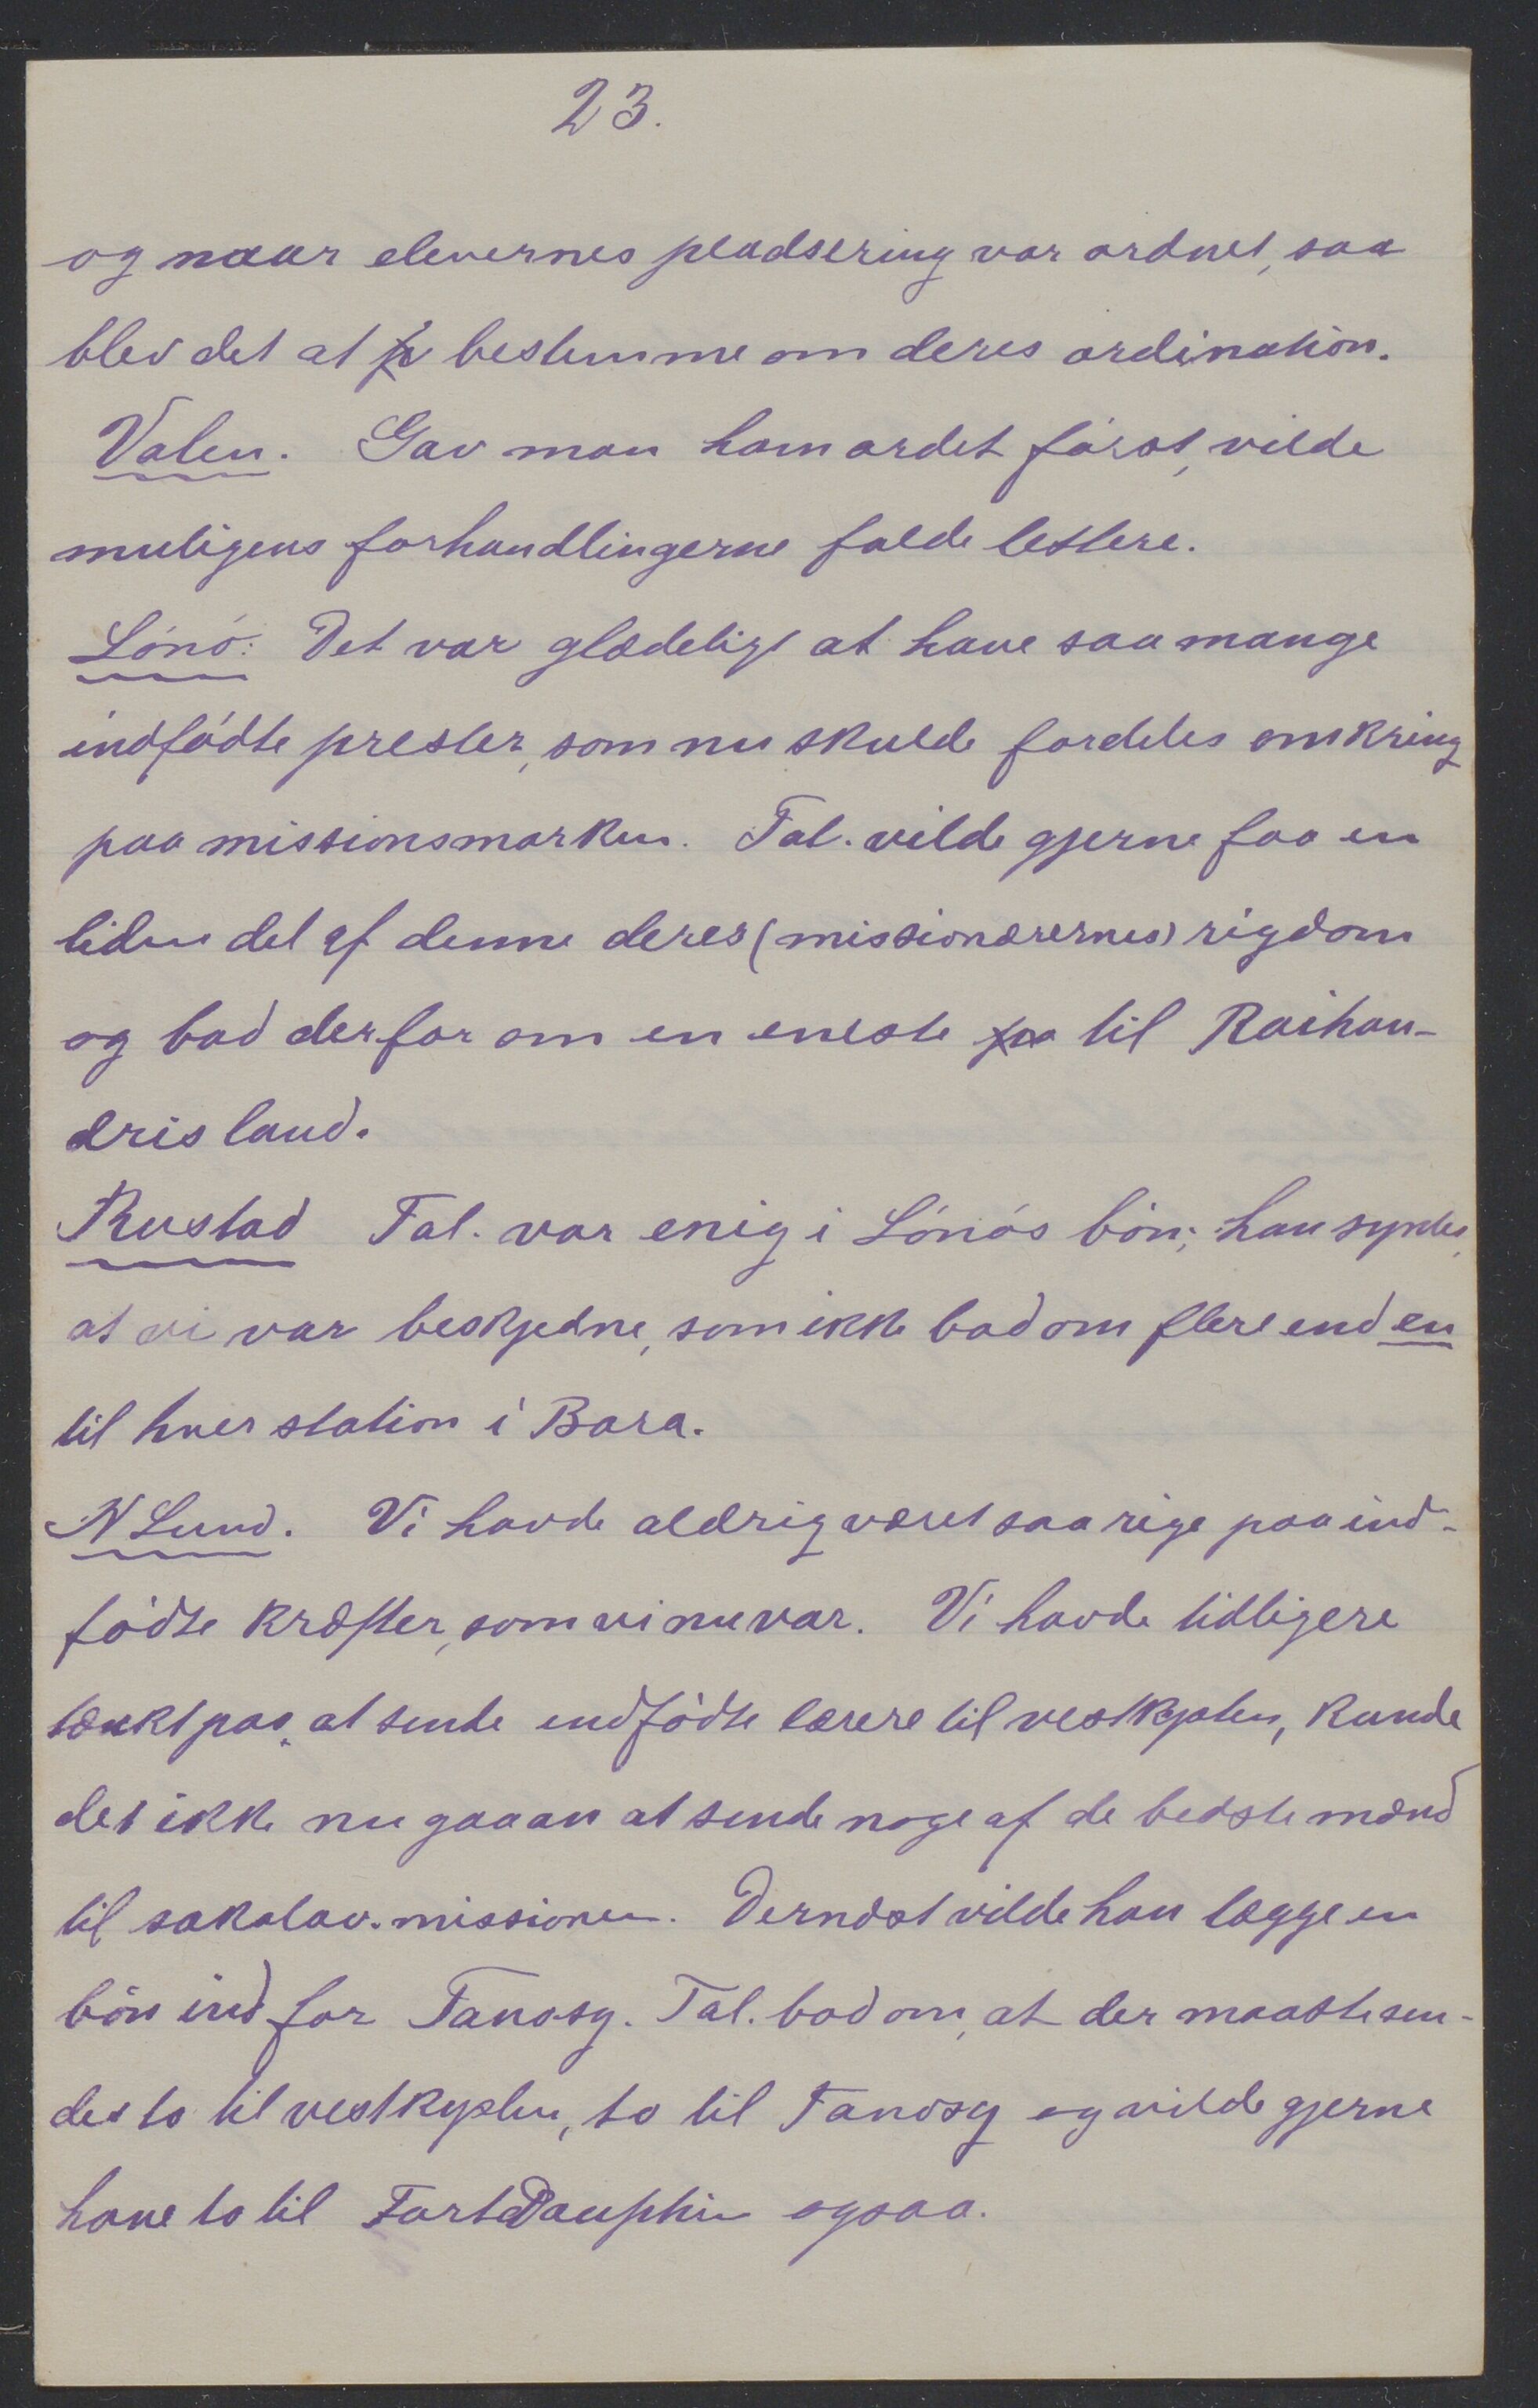 23.
og naar elevernes pladsering var ordnet, saa
blev det at bestemme om deres ordination.
Valen. Gav man ham ordet först, vilde
muligens forhandlingerne falde lettere.
Lönö: Det var glædeligt at have saa mange
indfödte prester, som nu skulde fordeles omkring
paa missionsmarken. Tal. vilde gjerne faa en
liden del af denne deres (missionærernes) rigdom
og bad derfor om en eneste til Raihau-
æris land.
Rustad Tal. var enig i Lönös bön; han syntes,
at vi var beskjedne, som ikke bad om flere end en
til hver station i Bara.
N Lund. Vi havde aldrig været saa rige paa ind-
födte kræfter, som vi nu var. Vi havde tidligere
tænkt paa, at sende indfödte lærere til vestkysten, kunde
det ikke nu gaa an at sende noge af de bedste mænd
til sakalav. missionen. Dernæst vilde han lægge en
bön ind for Tanosy. Tal. bad om, at der maatte sen-
des to til vestkysten, to til Tanosy og vilde gjerne
have to til Fort Dauphin ogsaa.